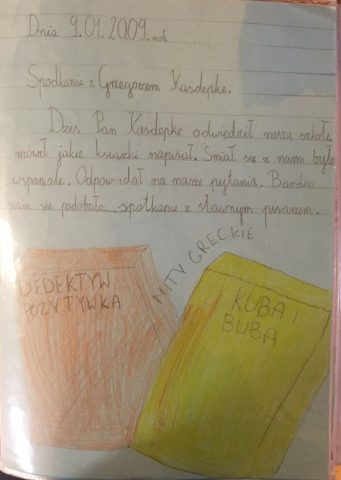 Dnia 9.01.2009. rok
Spodkanie z Grzegorzem Kasdepke.
Dziś Pan Kasdepke odwiedził nasza szkołe,
mówił jakie książki napisał. Śmiał się z nami było
wspaniale. Odpowiadał na nasze pytania. Bardzo
nam się podobało spotkanie z sławnym pisarzem.
MITY GRECKIE
DEDEKTYW
POZYTYWKA
KUBA I
BUBA